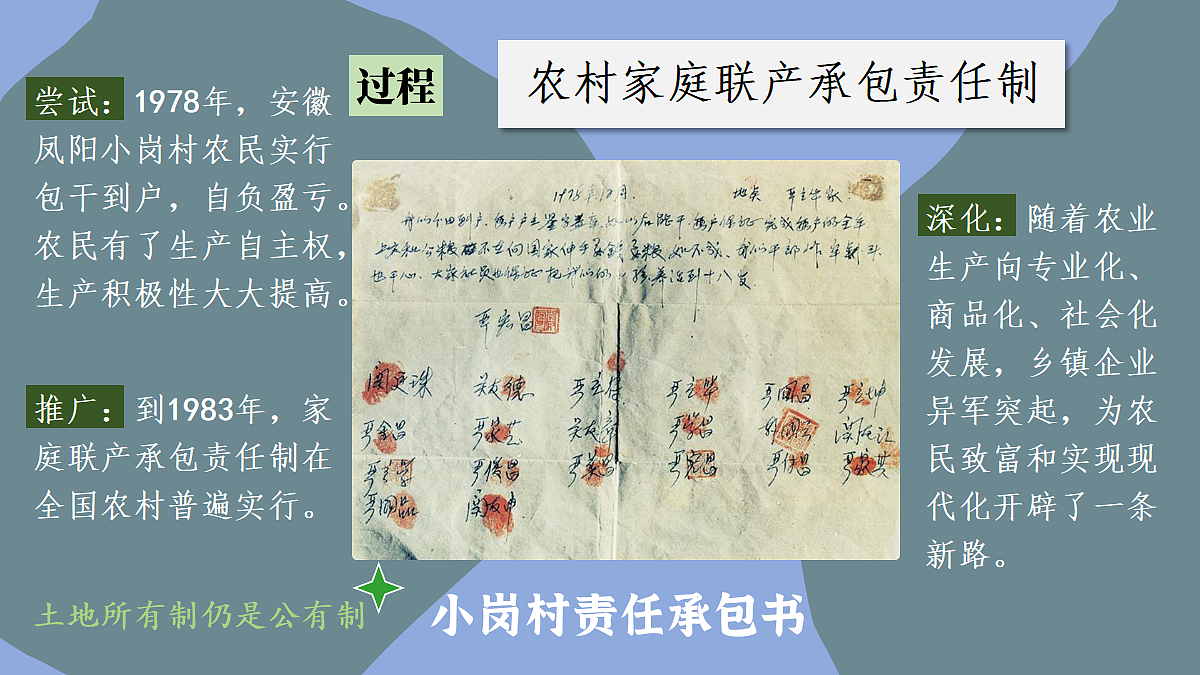 过程
农村家庭联产承包责任制
尝试：1978年，安徽
凤阳小岗村农民实行
包干到户，自负盈亏。
农民有了生产自主权，
生产积极性大大提高。
推广：到1983年，家
庭联产承包责任制在
全国农村普遍实行。
土地所有制仍是公有制
1978年12月. 地点 严立华家.
我们分田到户.每户户主签字盖章.如以后能干.每户保证完成每户的全年
上交和公粮 不在向国家伸手要钱要粮.如不成.我们干部作牢刹头
也干心.大家社员也保证把我们的小孩养活到十八岁.
严宏昌
关廷珠 严立华 严国昌 严立坤
严金昌 严家芝 关友章 严学昌 韩国云 关友江
严立学 严俊昌 严美昌 严宏昌 严付昌 严家其
严国品 关友申
小岗村责任承包书
深化：随着农业
生产向专业化、
商品化、社会化
发展，乡镇企业
异军突起，为农
民致富和实现现
代化开辟了一条
新路。